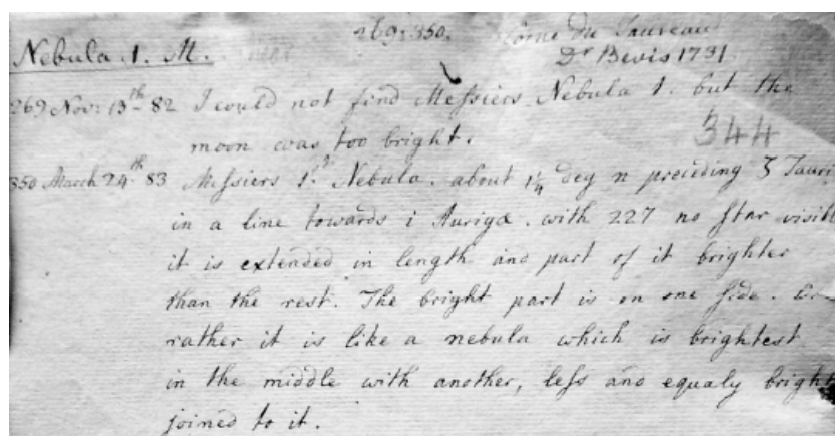 269. 350. Corne du Taureau
Nebula 1. M. Dr Bevis 1731.
269 Nov: 13th 82 I could not find Meſsiers Nebula 1. but the
moon was too bright. 344
350 March 24th 83 Meſsiers 1st Nebula. about 1¼ deg n preceding ζ Tauri
in a line towards i Aurigæ. with 227 no ſtar visible
it is extended in length and part of it brighter
than the rest. The bright part is on one ſide. Or
rather it is like a nebula which is brightest
in the middle with another, leſs and equaly bright
joined to it.